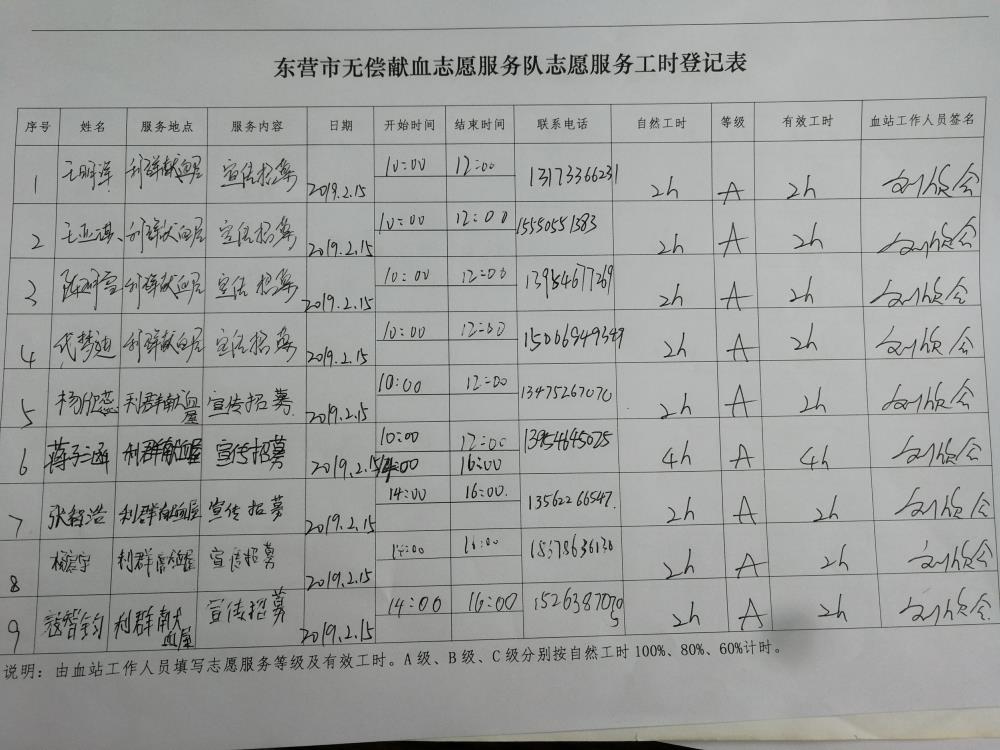 东营市无偿献血志愿服务队志愿服务工时登记表
序号 姓名 服务地点 服务内容 日期 开始时间 结束时间 联系电话 自然工时 等级 有效工时 血站工作人员签名
1 王明洋 利群献血屋 宣传招募 2019.2.15 10:00 12:00 13173366231 2h A 2h
2 王亚淇 利群献血屋 宣传招募 2019.2.15 10:00 12:00 15550551383 2h A 2h
3 利群献血屋 宣传招募 2019.2.15 10:00 12:00 13954677269 2h A 2h
4 代梦迪 利群献血屋 宣传招募 2019.2.15 10:00 12:00 2h A 2h
5 杨欣蕊 利群献血屋 宣传招募 2019.2.15 10:00 12:00 13475267070 2h A 2h
6 蒋子涵 利群献血屋 宣传招募 2019.2.15 10:00 12:00 13954645025 4h A 4h
14:00 16:00
7 张铭浩 利群献血屋 宣传招募 2019.2.15 14:00 16:00 13562266547 2h A 2h
8 利群献血屋 宣传招募 2019.2.15 14:00 16:00 2h A 2h
9 利群献血屋 宣传招募 2019.2.15 14:00 16:00 2h A 2h
说明：由血站工作人员填写志愿服务等级及有效工时。A级、B级、C级分别按自然工时100%、80%、60%计时。